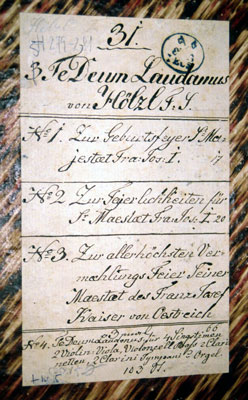 31.
3 Te Deum Laudamus
von Hölzl F. S.
No 1. Zur Geburtsfeyer Sr Ma-
jestaet Fra: Jos: I. 17
No 2 Zur Feyerlichkeiten für
Sr Maestaet Fra: Jos: I. 20
No 3. Zur allerhöchsten Ver-
mæhlungs Feier Seiner
Maestaet des Franz Josef
Kaiser von Oestreich
No 4. Te Deum Laudamus für 4 Singstimen
2 Violin: Viola, Violonzell, Bass 2 Clari
netten, 2 Clarini Tympani & Orgel.